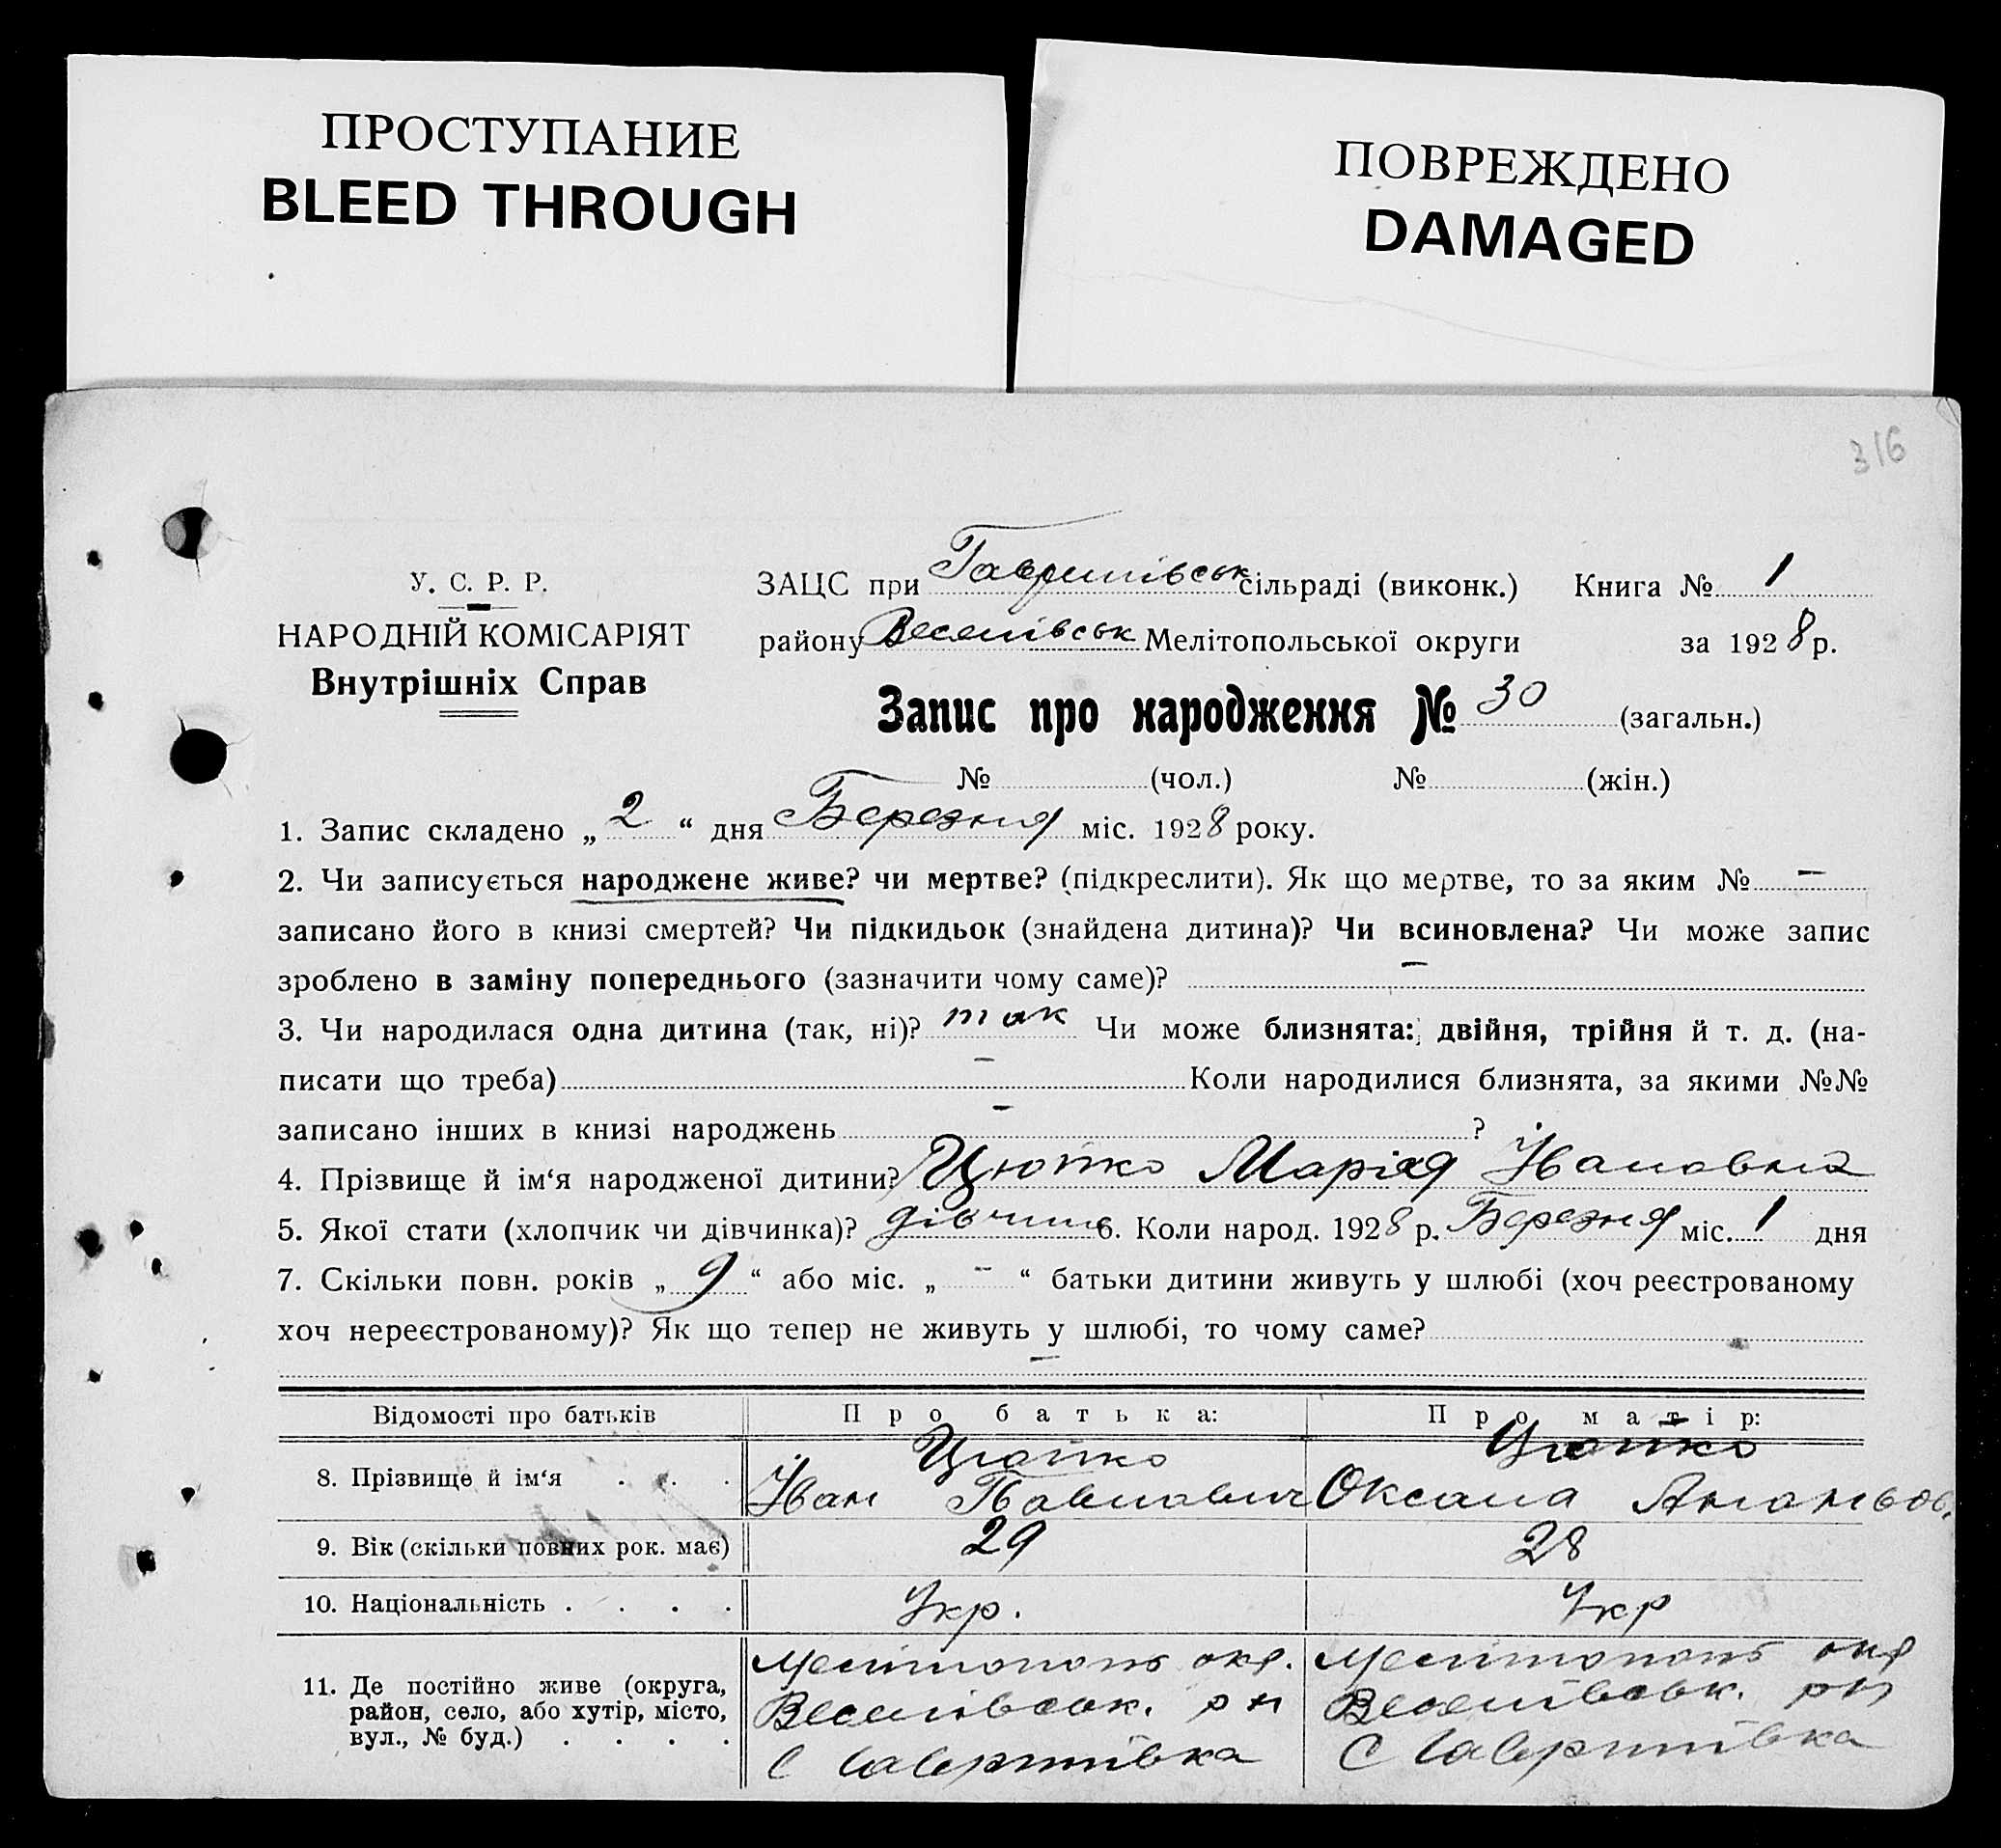 ПРОСТУПАНИЕ
BLEED THROUGH
ПОВРЕЖДЕНО
DAMAGED
316
У. С. Р. Р.
НАРОДНІЙ КОМІСАРІЯТ
Внутрішніх Справ
ЗАЦС при Гаврилівськ сільраді (виконк.) Книга № 1
району Веселівськ Мелітопольської округи за 1928 р.
Запис про народження № 30 (загальн.)
№ (чол.) № (жін.)
1. Запис складено „ 2 “ дня Березня міс. 1928 року.
2. Чи записується народжене живе? чи мертве? (підкреслити). Як що мертве, то за яким № —
записано його в книзі смертей? Чи підкидьок (знайдена дитина)? Чи всиновлена? Чи може запис
зроблено в заміну попереднього (зазначити чому саме)? —
3. Чи народилася одна дитина (так, ні)? так Чи може близнята: двійня, трійня й т. д. (на-
писати що треба) — Коли народилися близнята, за якими №№
записано інших в книзі народжень — ?
4. Прізвище й ім‘я народженої дитини? Цюпко Марія Івановна
5. Якої стати (хлопчик чи дівчинка)? дівчина 6. Коли народ. 1928 р. Березня міс. 1 дня
7. Скільки повн. років „ 9 “ або міс. „ - “ батьки дитини живуть у шлюбі (хоч реєстрованому
хоч нереєстрованому)? Як що тепер не живуть у шлюбі, то чому саме?
—
Відомості про батьків Про батька: Про матір:
8. Прізвище й ім‘я . . . Цюпко Цюпко
Іван Павлович Оксана Ананьов.
9. Вік (скільки повних рок. має) 29 28
10. Національність . . . . Укр. Укр
11. Де постійно живе (округа, Мелітополь окр. Мелітополь окр
район, село, або хутір, місто, Веселівськ. рн Веселівськ. рн
вул., № буд.) . . . . С Гаврилівка С Гаврилівка